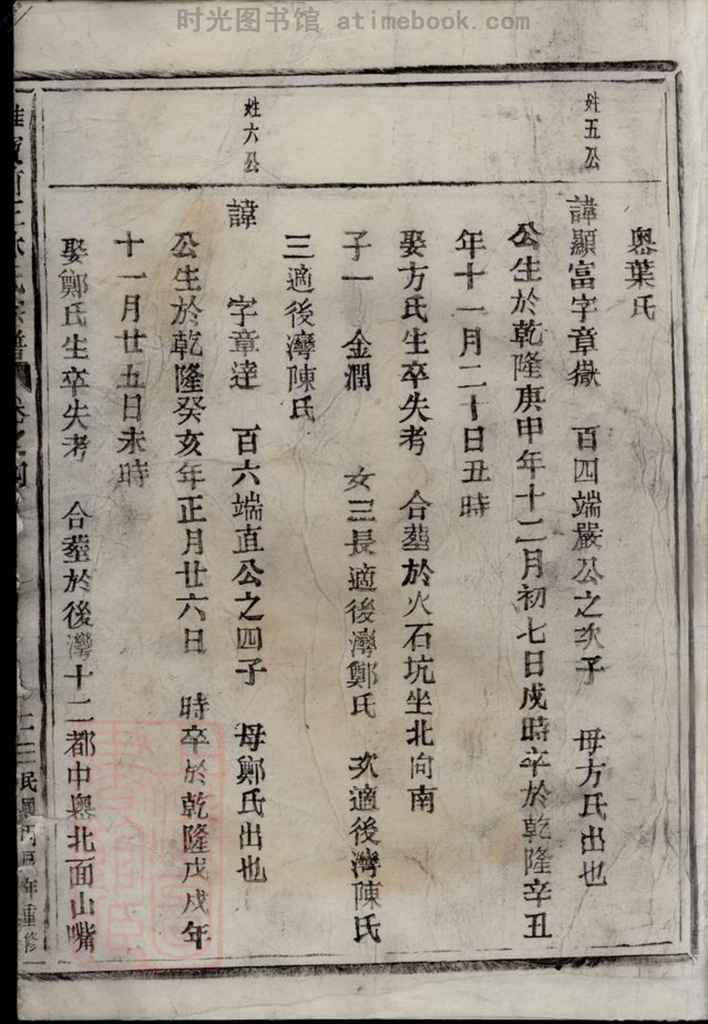 时光图书馆 atimebook.com
姓五公
嶴葉氏
諱顯富字章嶽 百四端嚴公之次子 母方氏出也
公生於乾隆庚申年十二月初七日戌時卒於乾隆辛丑
年十一月二十日丑時
娶方氏生卒失考 合塟於火石坑坐北向南
子一 金潤 女三長適後灣鄭氏 次適後灣陳氏
三適後灣陳氏
姓六公
諱 字章達 百六端直公之四子 母鄭氏出也
公生於乾隆癸亥年正月廿六日 時卒於乾隆戊戌年
十一月廿五日未時
娶鄭氏生卒失考 合塟於後灣十二都中嶴北面山嘴
宗譜 卷之四 二三 民國 年重修